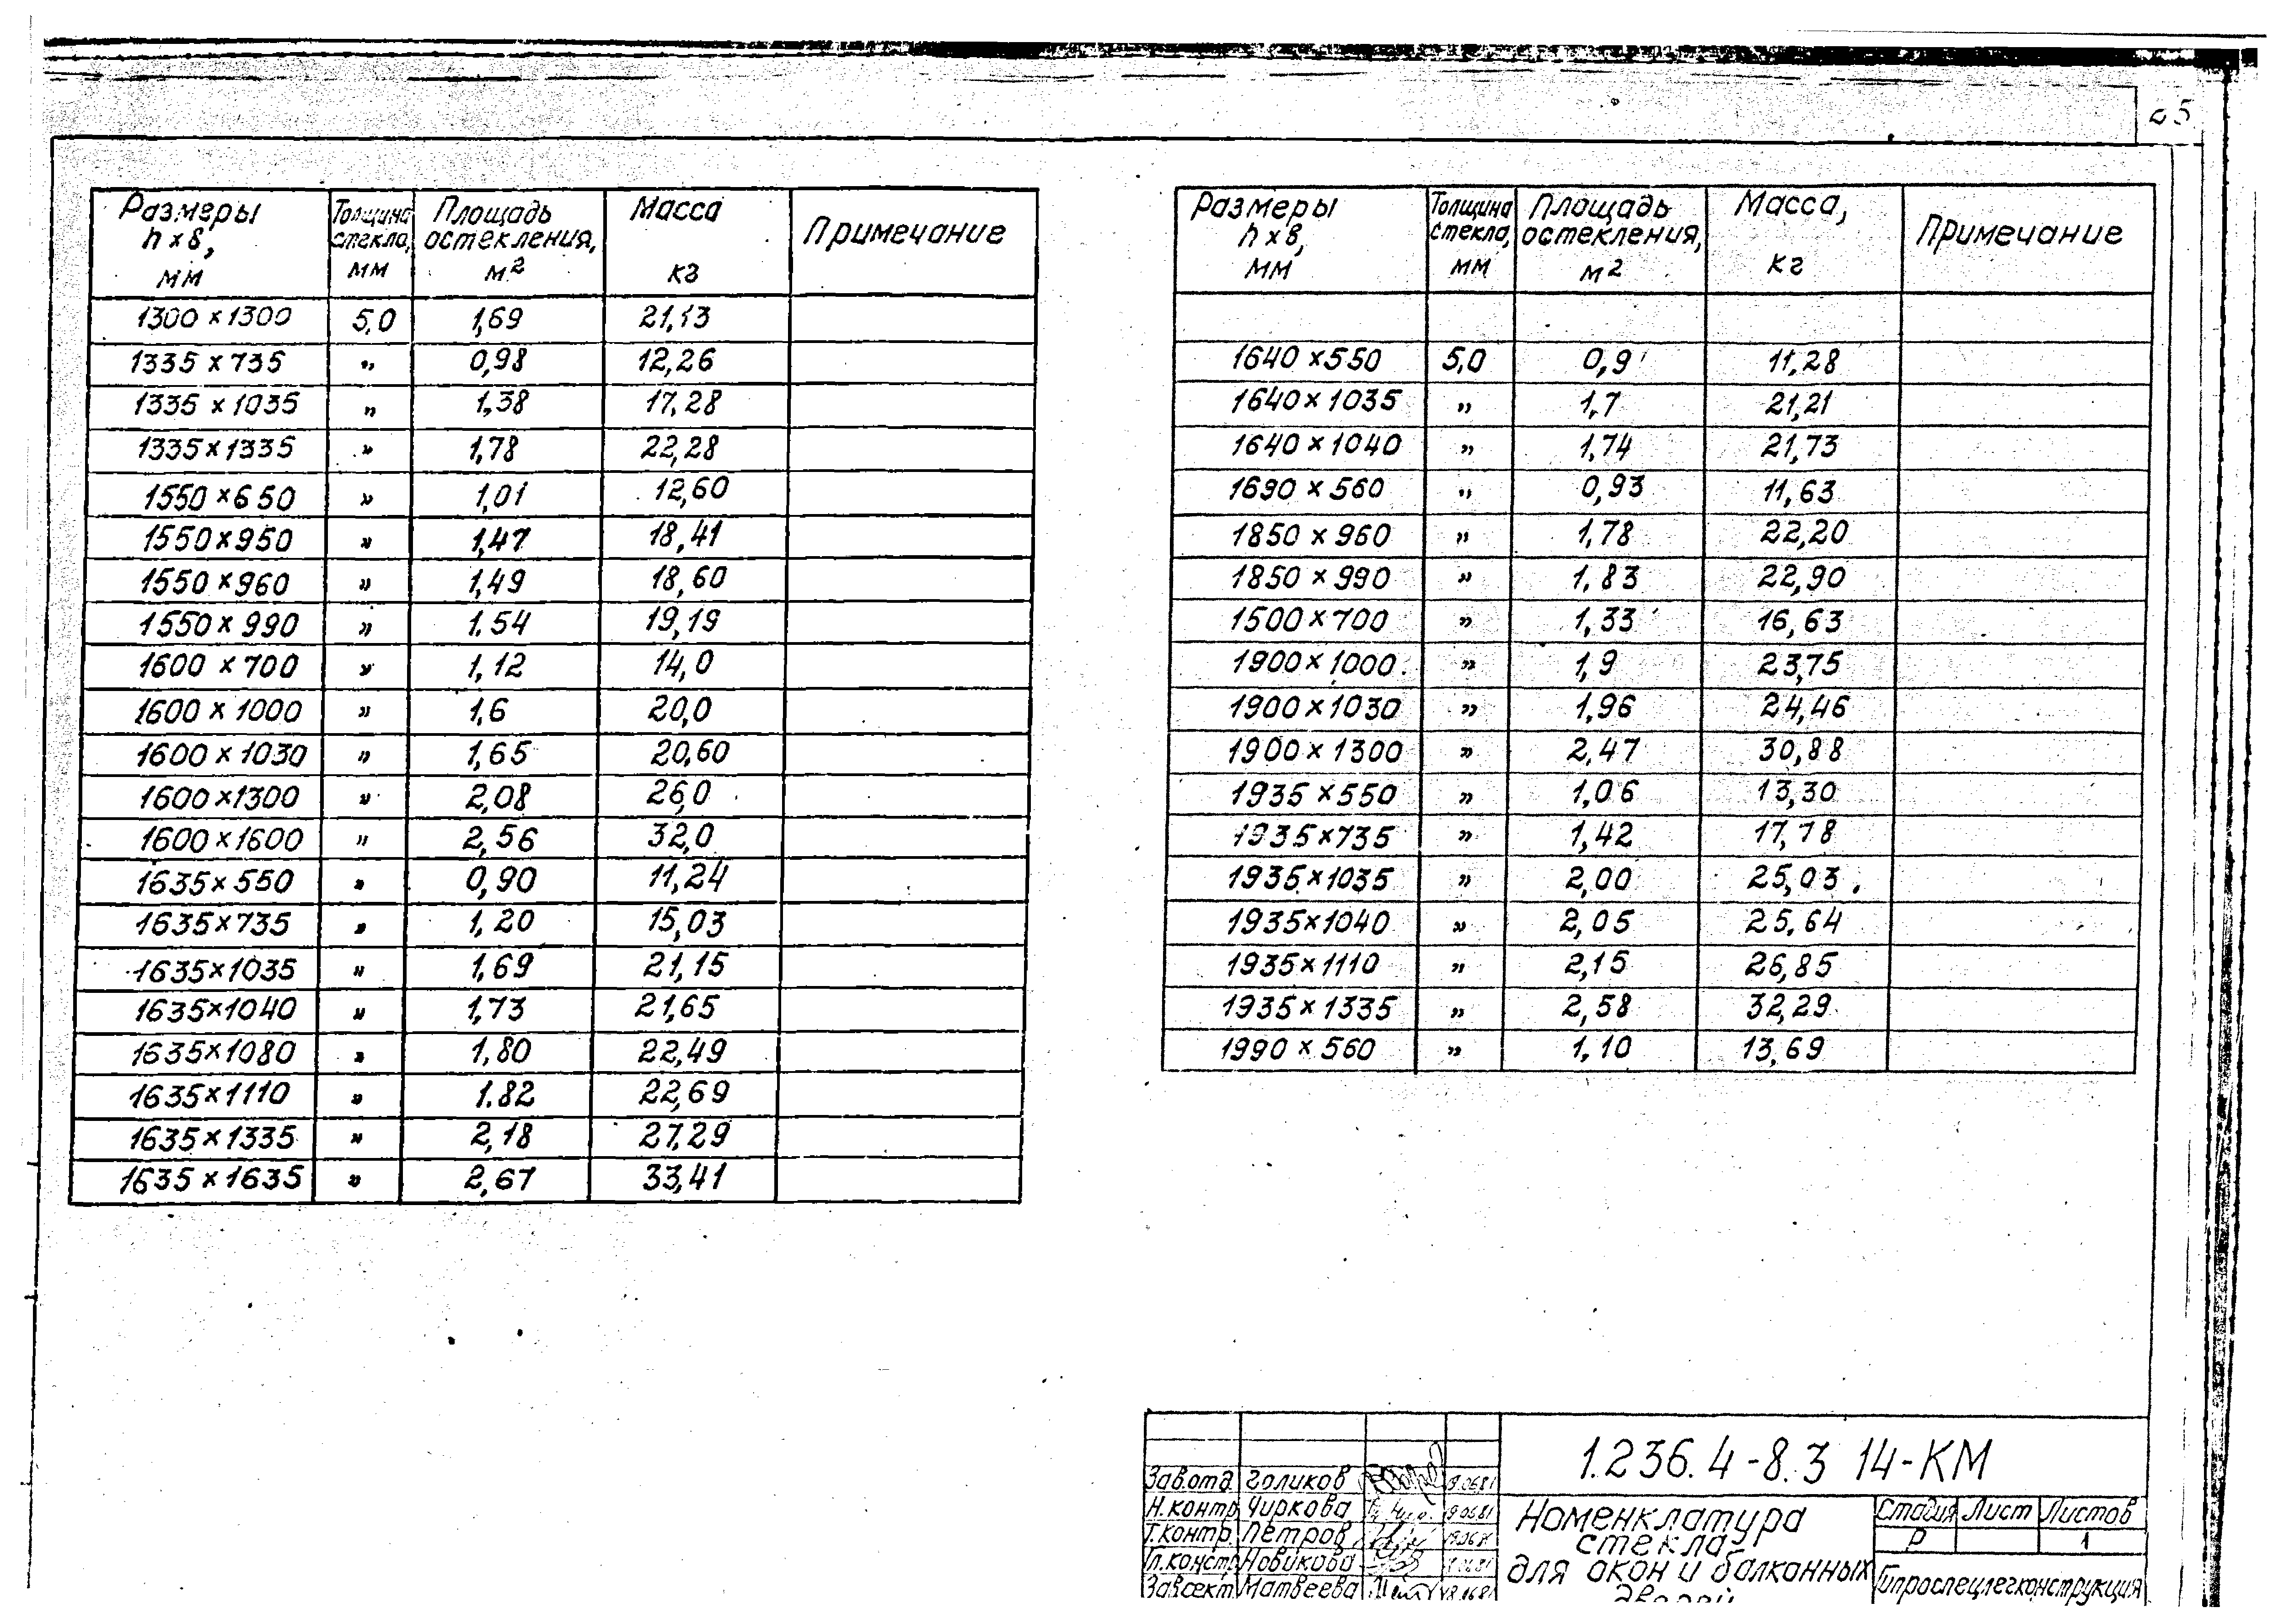 Размеры h x в, мм | Толщина стекла, мм | Площадь остекления, м² | Масса кг | Примечание
1300 x 1300 | 5,0 | 1,69 | 21,13
1335 x 735 | " | 0,98 | 12,26
1335 x 1035 | " | 1,38 | 17,28
1335 x 1335 | " | 1,78 | 22,28
1550 x 650 | " | 1,01 | 12,60
1550 x 950 | " | 1,47 | 18,41
1550 x 960 | " | 1,49 | 18,60
1550 x 990 | " | 1.54 | 19,19
1600 x 700 | " | 1,12 | 14,0
1600 x 1000 | " | 1,6 | 20,0
1600 x 1030 | " | 1,65 | 20,60
1600 x 1300 | " | 2,08 | 26,0
1600 x 1600 | " | 2,56 | 32,0
1635 x 550 | " | 0,90 | 11,24
1635 x 735 | " | 1,20 | 15,03
1635 x 1035 | " | 1,69 | 21,15
1635 x 1040 | " | 1,73 | 21,65
1635 x 1080 | " | 1,80 | 22,49
1635 x 1110 | " | 1.82 | 22,69
1635 x 1335 | " | 2,18 | 27,29
1635 x 1635 | " | 2,67 | 33,41
Размеры h x в, мм | Толщина стекла, мм | Площадь остекления, м² | Масса, кг | Примечание
1640 x 550 | 5,0 | 0,9 | 11,28
1640 x 1035 | " | 1,7 | 21,21
1640 x 1040 | " | 1,74 | 21,73
1690 x 560 | " | 0,93 | 11,63
1850 x 960 | " | 1,78 | 22,20
1850 x 990 | " | 1,83 | 22,90
1500 x 700 | " | 1,33 | 16,63
1900 x 1000 | " | 1,9 | 23,75
1900 x 1030 | " | 1,96 | 24,46
1900 x 1300 | " | 2,47 | 30,88
1935 x 550 | " | 1,06 | 13,30
1935 x 735 | " | 1,42 | 17,78
1935 x 1035 | " | 2,00 | 25,03
1935 x 1040 | " | 2,05 | 25,64
1935 x 1110 | " | 2,15 | 26,85
1935 x 1335 | " | 2,58 | 32,29
1990 x 560 | " | 1,10 | 13,69
1.236.4-8.3 14-КМ
Зав.отд. Голиков
Н.контр. Чиркова 19.06.81
Т.контр. Петров
Гл.констр. Новикова
Зав.сект. Матвеева 18.06.81
Номенклатура
стекла
для окон и балконных
дверей
Стадия | Лист | Листов
Р | 1
Гипроспецлегконструкция